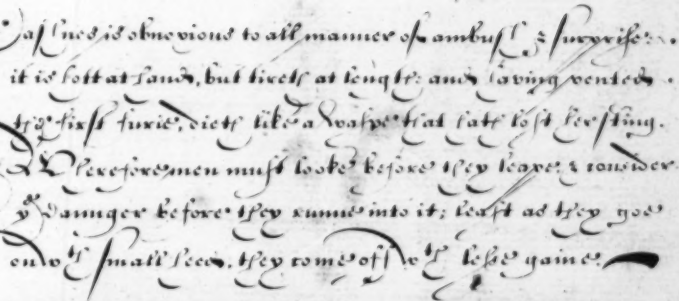 Rashnes is obnoxious to all manner of ambush & surprise:
it is hott at hand, but tireth at length: and having vented
the first furie, dieth like a waspe that hath lost her sting.
Wherefore men must looke before they leape, & consider
yᵉ daunger before they runne into it; least as they goe
on wᵗʰ small heed, they come off wᵗʰ lesse gaine.